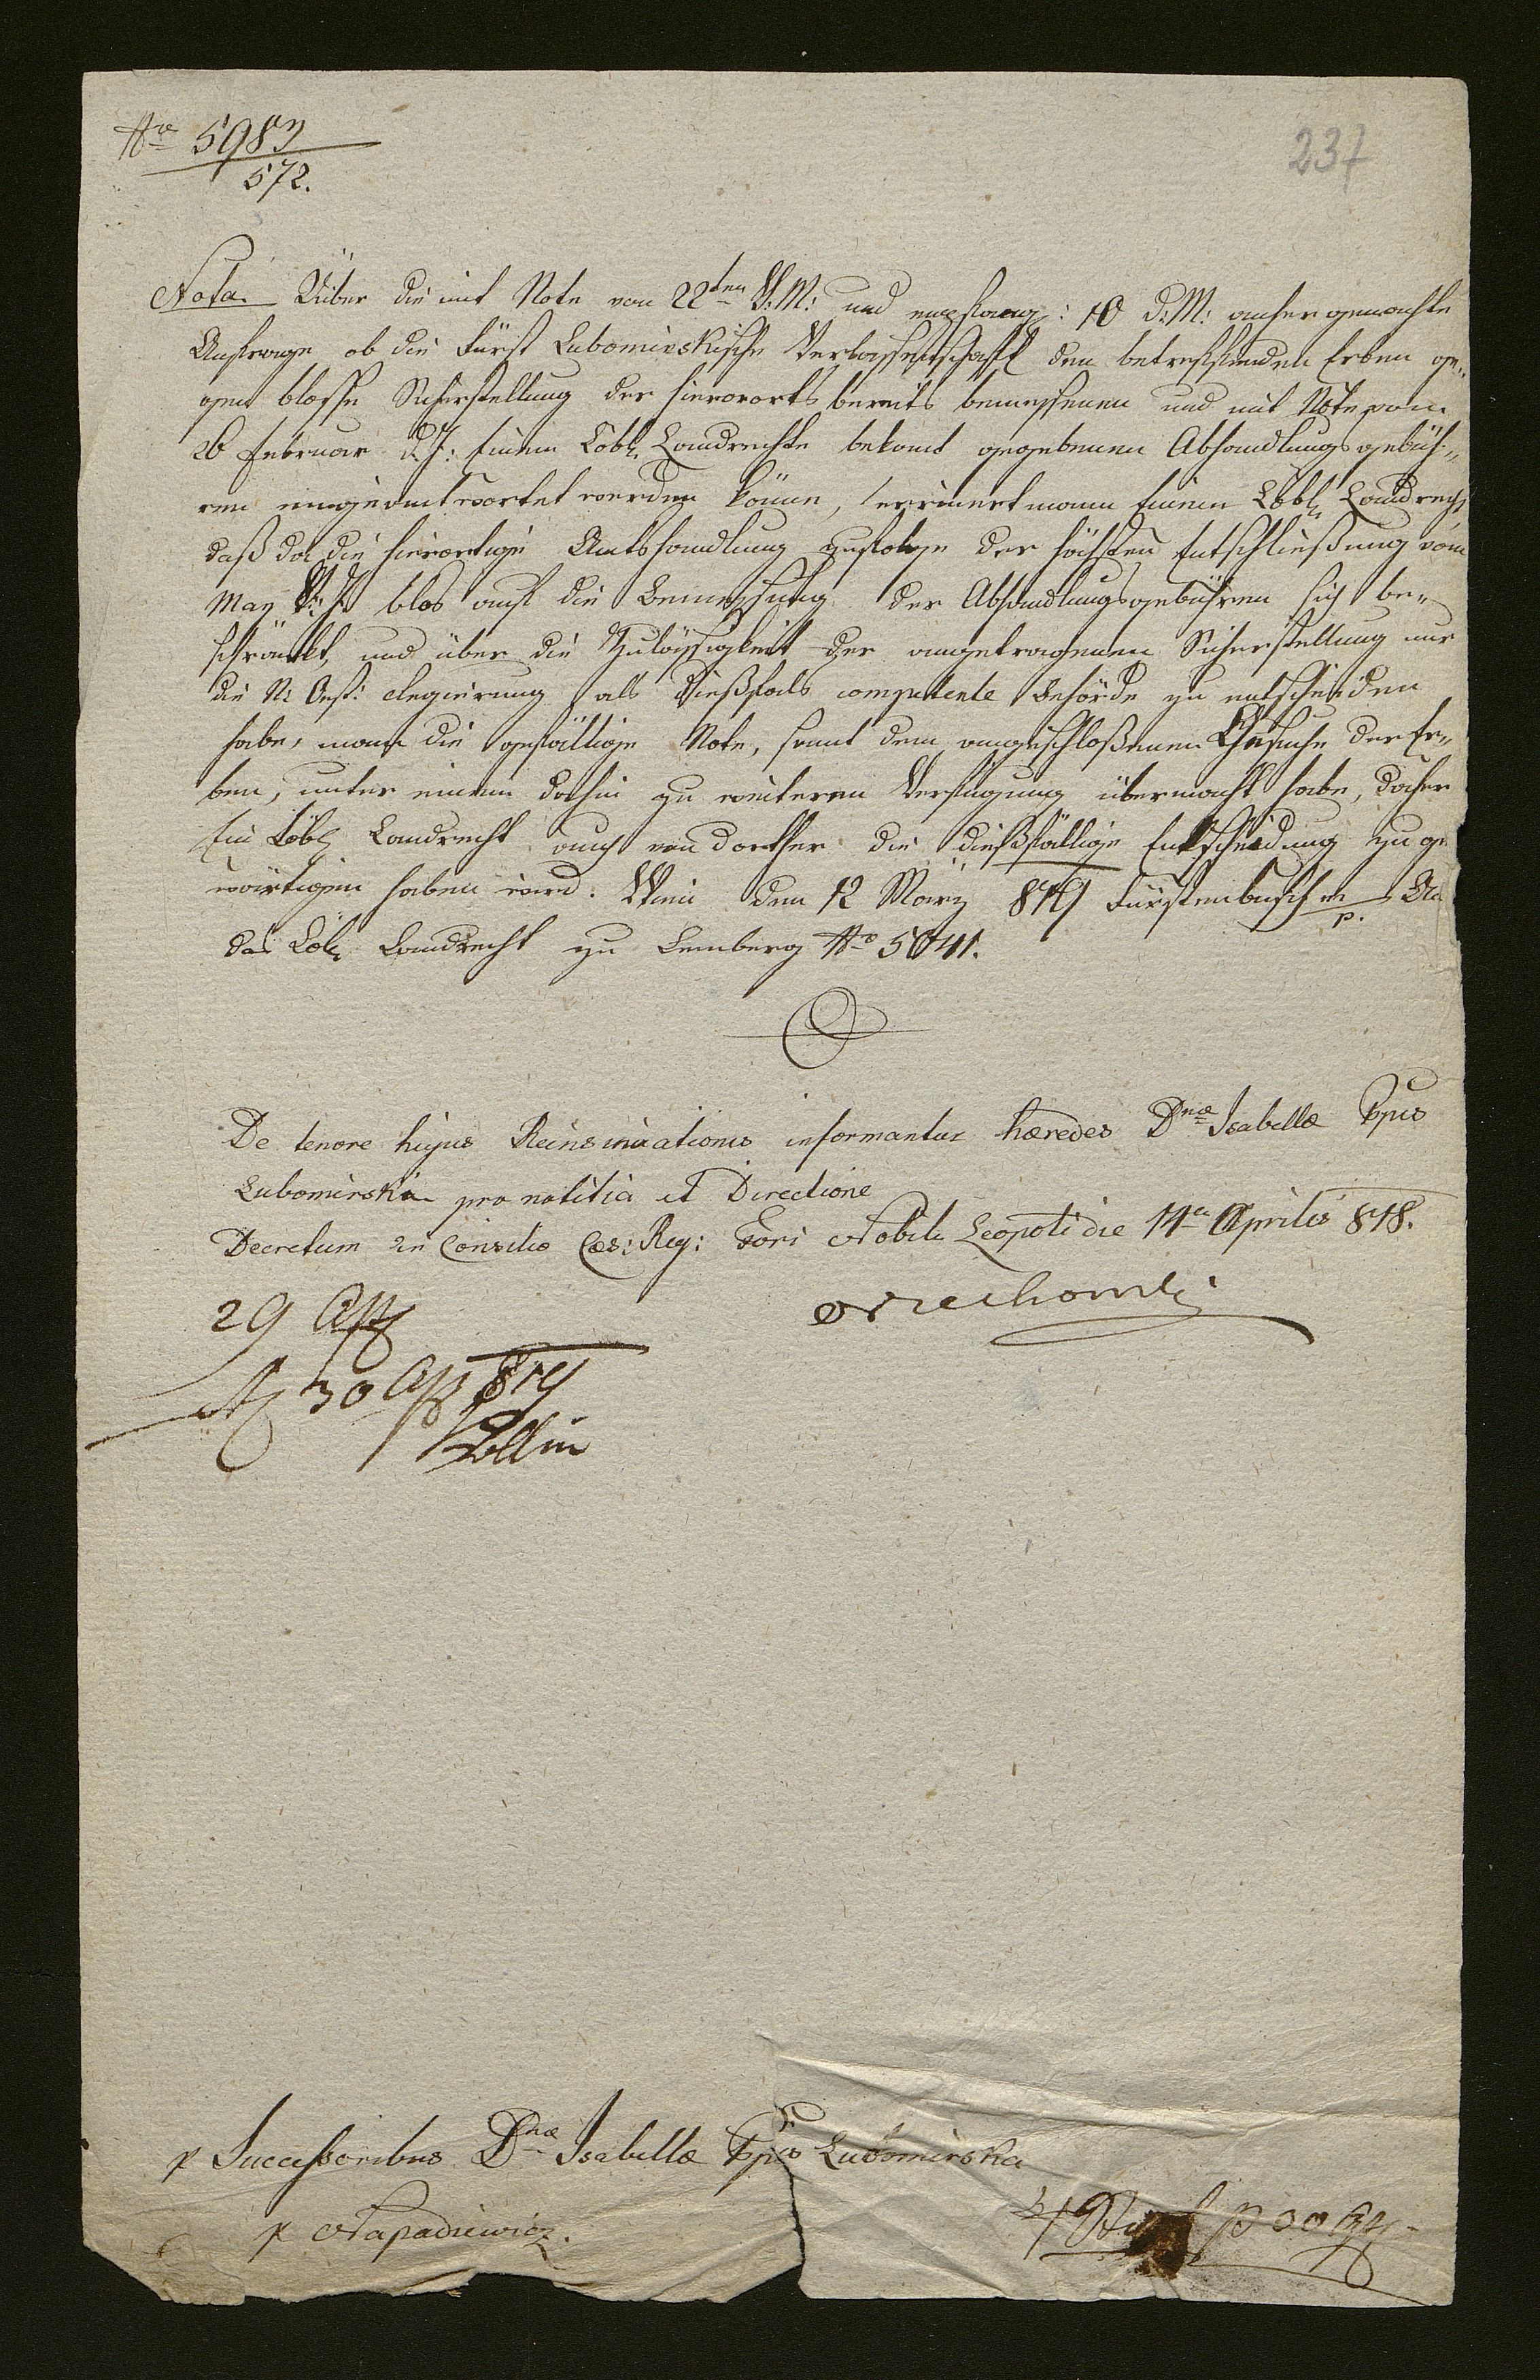 Nro 5983
572.
237
Nota. Uiber die mit Note von 22ten V: M: und empfang: 10 d: M: anher gemachte
Anfrage ob die Fürst Lubomirskische Verlassenschaft den betreffenden Erben ge„
gen blosse Sicherstellung der hierorts bereits bemessenen und mit Note vom
26 Februar d. J: Einem Löbl. Landrechte bekant gegebenen Abhandlungsgebüh„
ren eingeantwortet werden könne, erinert man Einem Löbl. Landrecht
daß da die hierortige Amtshandlung zufolge der höchsten Entschließung vom
May V: J. blos auf die Bemessung der Abhandlungsgebühren sich be„
schränkt, und über die Zulässigkeit der angetragenen Sicherstellung nur
die N: Oest: Regierung als dießfals competente Behörde zu entscheiden
habe, man die gefällige Note, samt dem angeschloßenen Gesuche der Er„
ben, unter einem dahin zu weiteren Verfügung übermacht habe, daher
Ein Löbl. Landrecht auch von dorther die dießfällige Entscheidung zu ge
wärtigen haben wird. Wien den 12 März 819 Fürstenbusch mp. An
das Löbl. Landrecht zu Lemberg Nro 5041.
De tenore hujus Reinsinuationis informantur hæredes Dnæ Isabellæ Ppis
Lubomirska pro notitia et Directione
Decretum in Consilio Cæs: Reg: Fori Nobil: Leopoli die 14a Aprilis 818.
29 Apr
30 Apr 819
p Successoribus Dnæ Isabellæ Ppis Lubomirska
p Napadiewicz.